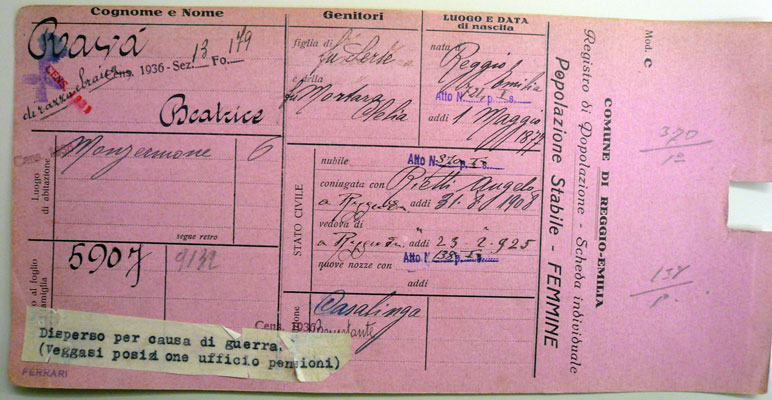 Cognome e Nome
Ravà
Cens. 1936 - Sez. 13 Fo. 179
di razza ebraica
Beatrice
Monzermone 6
Luogo
di abitazione
segue retro
5907 9132
Disperso per causa di guerra.
(Veggasi posizione ufficio pensioni)
FERRARI
Genitori
figlia di
fu
e della
fu Mortara
Clelia
LUOGO E DATA
di nascita
nata a
Reggio
Emilia
Atto N. p. s.
addì 1 Maggio
1877
STATO CIVILE
nubile Atto N. p. s.
coniugata con Rietti Angelo
a addì 31.8.1908
vedova di "
a addì 23-2-925
nuove nozze con Atto N. p. s.
addì
Casalinga
Cens. 1936 Benestante
Mod. C
COMUNE DI REGGIO-EMILIA
Registro di Popolazione - Scheda individuale
Popolazione Stabile - FEMMINE
370
138